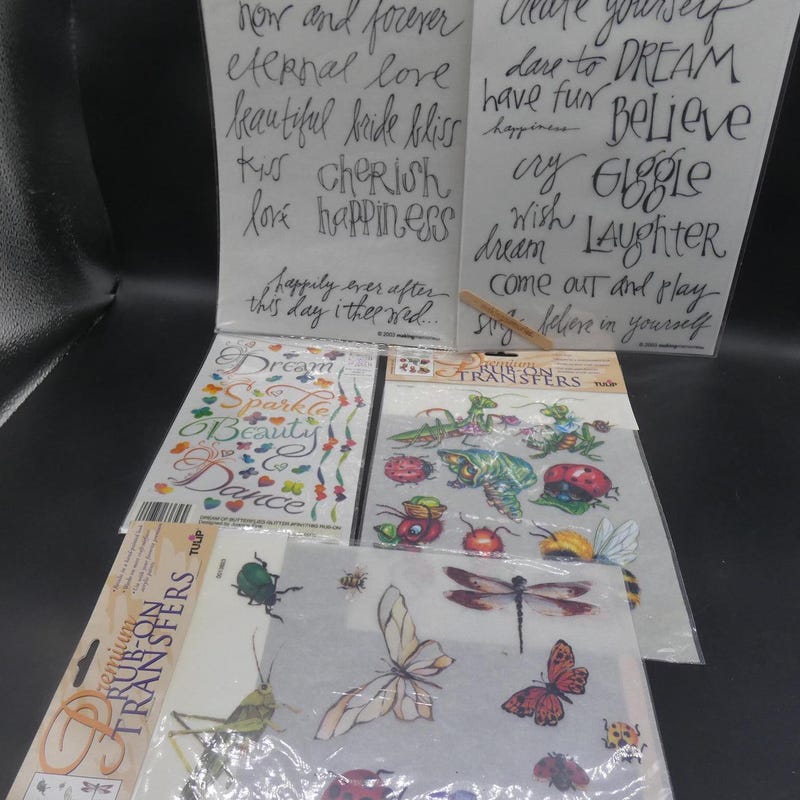 now and forever
eternal love
beautiful bride bliss
kiss cherish
love happiness
happily ever after
this day i thee wed...
© 2003 making memories
create yourself
dare to DREAM
have fun
happiness
BeLiEve
cry GiGGLE
wish
dream LAUGHTER
come out and play
sing believe in yourself
© 2003 making memories
Dream
Sparkle
Beauty
Dance
DREAM OF BUTTERFLIES GLITTER
RUB-ON
Designed by
Premium
RUB-ON
TRANSFERS
TULIP
TULIP
Premium
RUB-ON
TRANSFERS